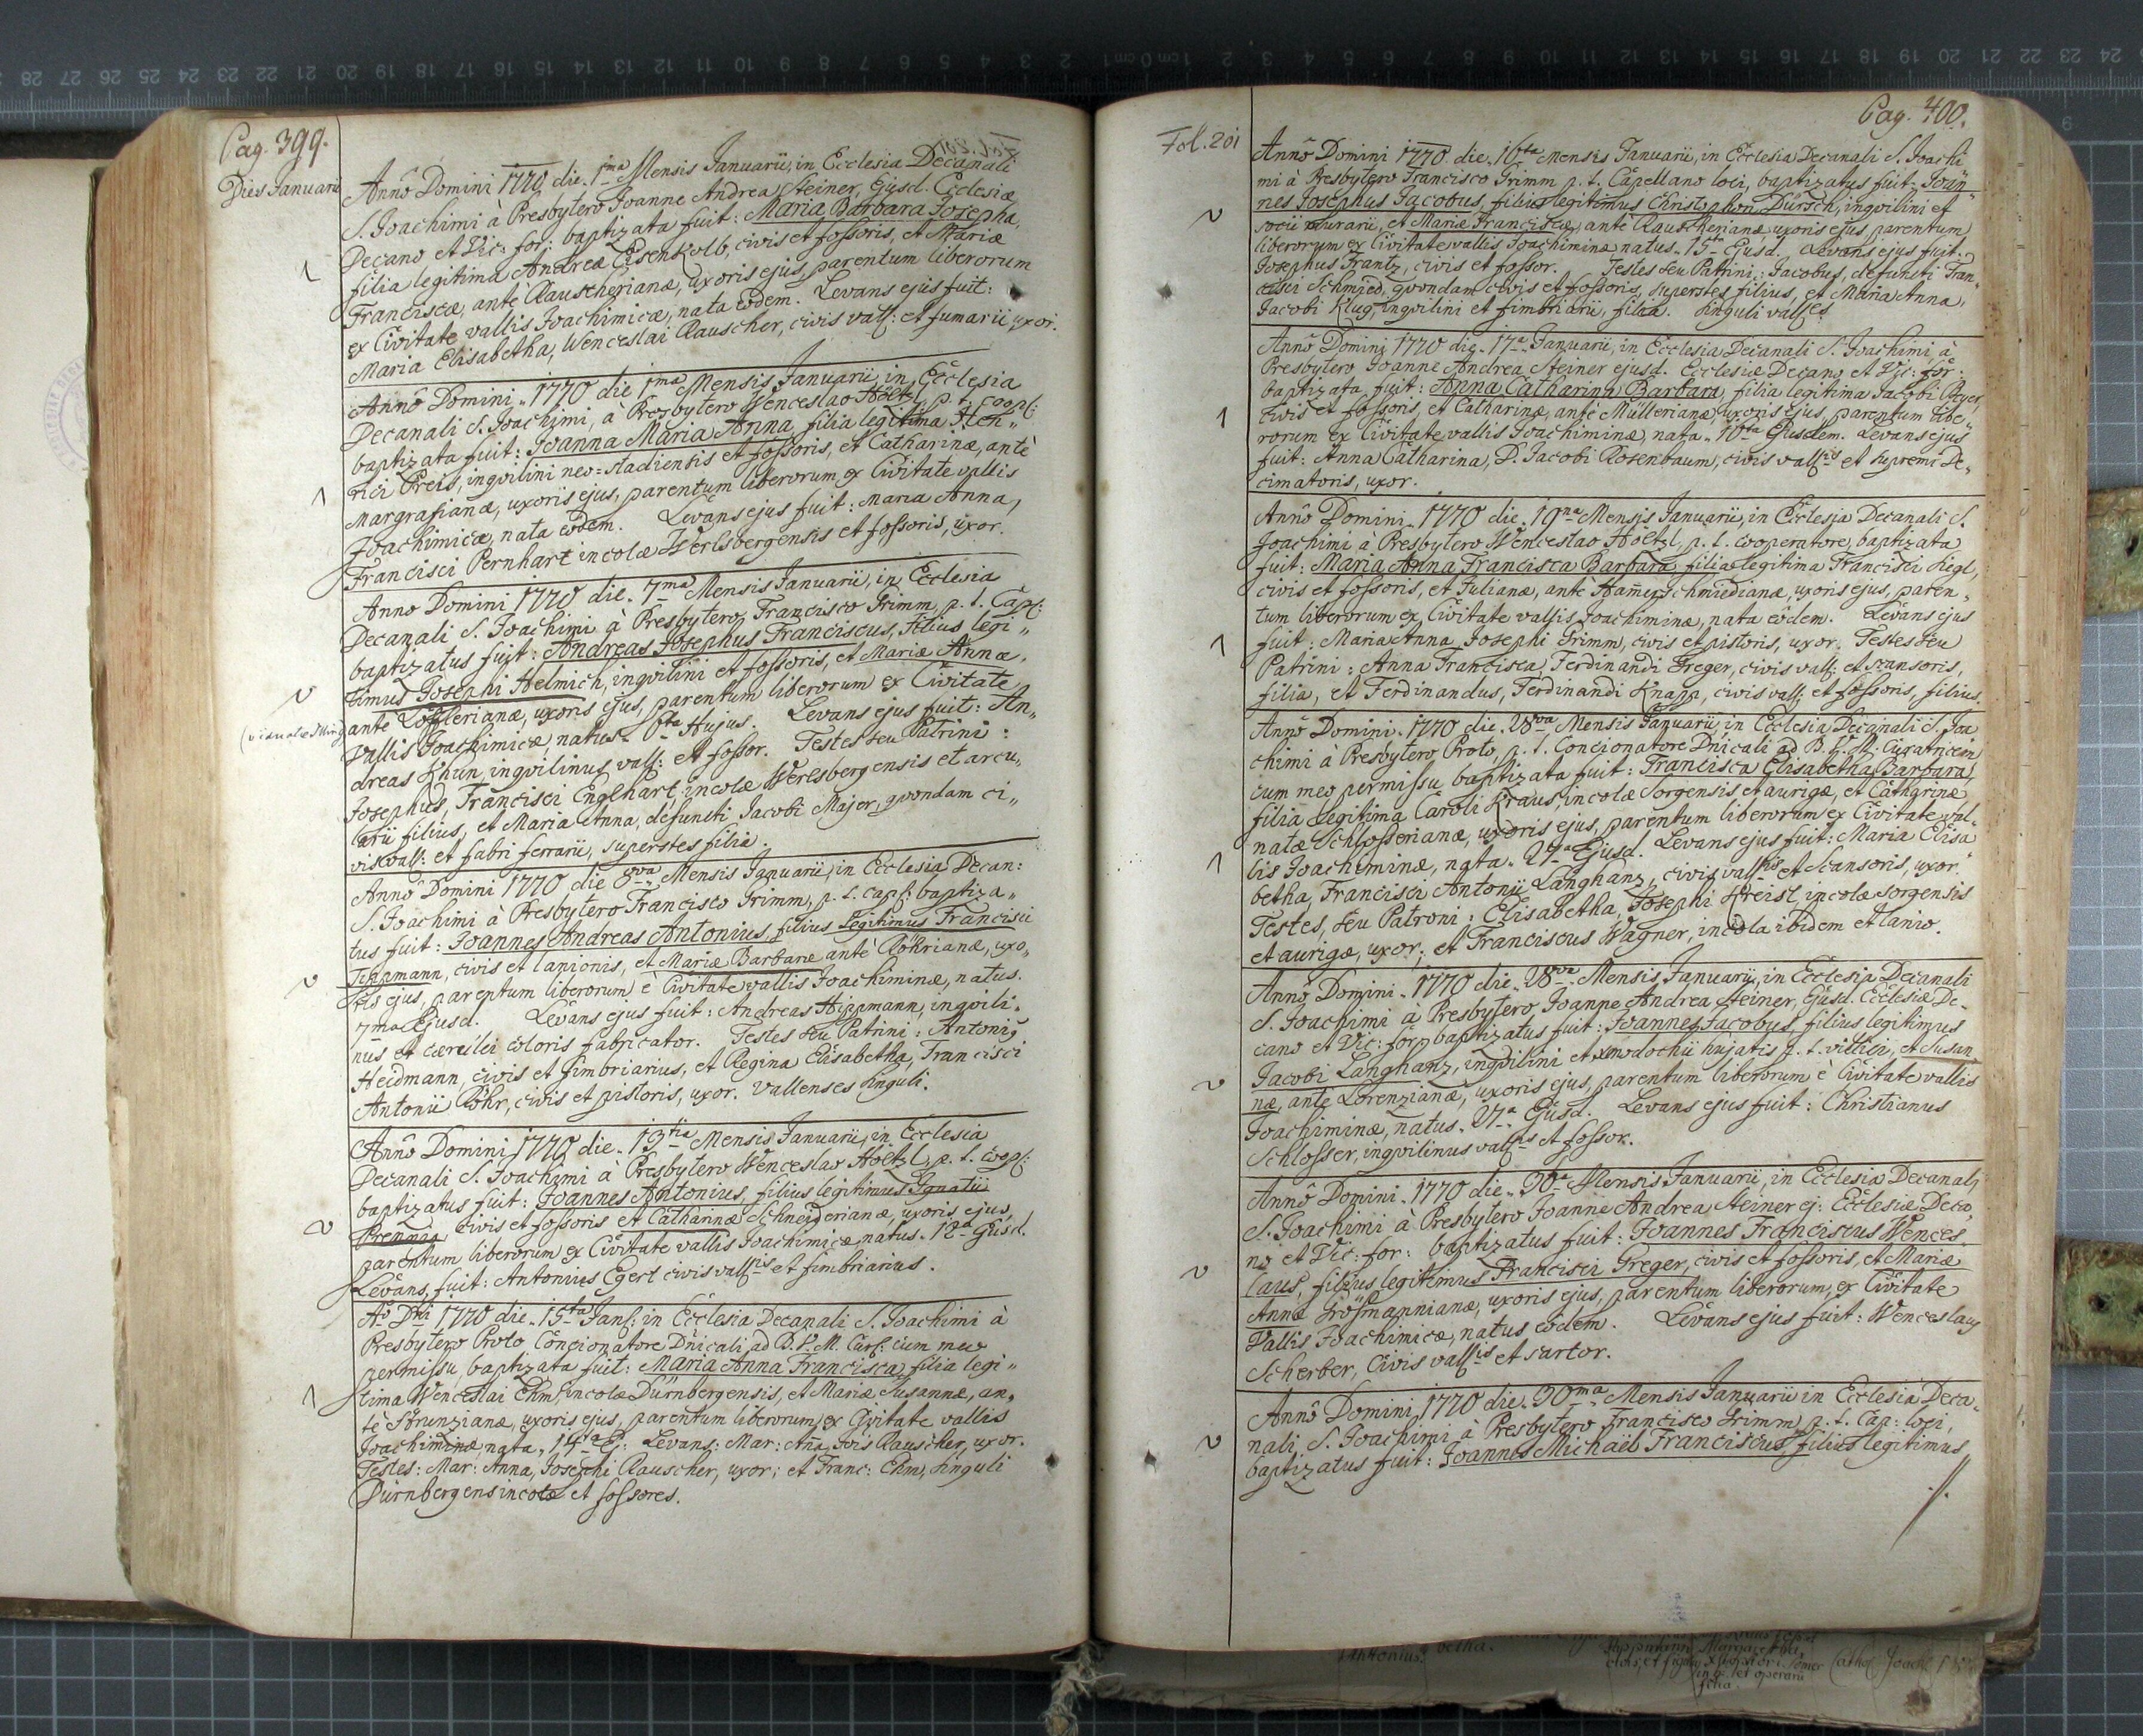 Pag. 399.
Dies Januarii
Anno Domini 1770 die 1ma Mensis Januarii, in Ecclesia Decanali
S. Joachimi à Presbytero Joanne Andrea Steiner, Ejusd. Ecclesiæ
Decano et Vic: for: baptizata fuit: Maria Barbara Josepha,
filia legitima Andreæ Eisenkolb, civis et fossoris, et Mariæ
Franciscæ, antè Rauscherianæ, uxoris ejus, parentum liberorum
ex Civitate vallis Joachimicæ, nata eodem. Levans ejus fuit:
Maria Elisabetha, Wenceslai Rauscher, civis vall: et fumarii, uxor.
Anno Domini 1770 die 1ma Mensis Januarii in Ecclesia
Decanali S. Joachimi, à Presbytero Wenceslao Höltzl, p. t. coopl:
baptizata fuit: Joanna Maria Anna, filia legitima Hen„
rici Preis, inqvilini neo=stadiensis et fossoris, et Catharinæ, antè
Margrafianæ, uxoris ejus, parentum liberorum, ex Civitate vallis
Joachimicæ, nata eodem. Levans ejus fuit: Maria Anna,
Francisci Pernhart incolæ Werlsbergensis et fossoris, uxor.
Anno Domini 1770 die 7ma Mensis Januarii, in Ecclesia
Decanali S. Joachimi à Presbytero Francisco Grimm, p. t. Capl:
baptizatus fuit: Andreas Josephus Franciscus, filius legi„
timus Josephi Helmich, inqvilini et fossoris, et Mariæ Annæ,
antè Löfflerianæ, uxoris ejus, parentum liberorum ex Civitate
Vallis Joachimicæ, natus 6ta Hujus. Levans ejus fuit: An„
dreas Khun, inqvilinus vall: et fossor. Testes seu Patrini:
Josephus, Francisci Englhart incolæ Werlsbergensis et arcu„
larii filius, et Maria Anna, defuncti Jacobi Majer, qvondam ci„
vis vall: et fabri ferrarii, superstes filia.
Anno Domini 1770 die 8va Mensis Januarii, in Ecclesia Decan:
S. Joachimi à Presbytero Francisco Grimm, p. t. capl: baptiza„
tus fuit: Joannes Andreas Antonius, filius legitimus Francisci
Hippmann, civis et lanionis, et Mariæ Barbaræ antè Röhrianæ, uxo„
ris ejus, parentum liberorum è Civitate vallis Joachiminæ, natus
7ma Ejusd. Levans ejus fuit: Andreas Hippmann, inqvili„
nus et cærulei coloris fabricator. Testes seu Patrini: Antonius
Heidmann, civis et fimbriarius, et Regina Elisabetha, Francisci
Antonii Röhr, civis et pistoris, uxor. Vallenses singuli.
Anno Domini 1770 die 13tia Mensis Januarii, in Ecclesia
Decanali S. Joachimi à Presbytero Wenceslao Höltzl, p. t. Coopl:
baptizatus fuit: Joannes Antonius, filius legitimus Ignatii
Prennig, Civis et fossoris et Catharinæ Schneiderianæ, uxoris ejus,
parentum liberorum ex Civitate vallis Joachimicæ, natus 12a Ejusd.
Levans, fuit: Antonius Egert civis vallis et fimbriarius.
Ao Dni 1770 die 15ta Janl: in Ecclesia Decanali S. Joachimi à
Presbytero Proto Concionatore Dnicali ad B. V. M. Curl: cum meo
permissu, baptizata fuit: Maria Anna Francisca, filia legi„
tima Wenceslai Ehm, incolæ Dürnbergensis, et Mariæ Susannæ, an„
tè Strunzianæ, uxoris ejus, parentum liberorum, ex Civitate vallis
Joachiminæ, nata 14ta Ej: Levans: Mar: Aña, Jois Rauscher, uxor.
Testes: Mar: Anna, Josephi Rauscher, uxor; et Franc: Ehm, singuli
Dürnbergens incolæ et fossores.
Pag. 400.
Fol. 201
Anno Domini 1770 die 16ta mensis Januarii, in Ecclesia Decanali S. Joachi
mi à Presbytero Francisco Grimm p. t. Capellano loci, baptizatus fuit: Joan„
nes Josephus Jacobus, filius legitimus Christophori Dürsch, inqvilini et
socii murarii, et Mariæ Franciscæ, antè Rauscherianæ, uxoris ejus, parentum
liberorum ex Civitate vallis Joachiminæ natus 15ta Ejusd. Levans ejus fuit:
Josephus Frantz, civis et fossor. Testes seu Patrini: Jacobus, defuncti Fran„
cisci Schmied, qvondam civis et fossoris, superstes filius, et Maria Anna,
Jacobi Klug, inqvilini et fimbriarii, filia. Singuli valles.
Anno Domini 1770 die 17a Januarii, in Ecclesia Decanali S. Joachimi, à
Presbytero Joanne Andrea Steiner ejusd. Ecclesiæ Decano et Vic: for:
baptizata fuit: Anna Catharina Barbara, filia legitima Jacobi Beyer,
civis et fossoris, et Catharinæ, antè Müllerianæ, uxoris ejus, parentum libe„
rorum ex Civitate vallis Joachiminæ, nata 16ta Ejusdem. Levans ejus
fuit: Anna Catharina, D. Jacobi Rosenbaum, civis vallis et supremi De„
cimatoris, uxor.
Anno Domini 1770 die 19na Mensis Januarii, in Ecclesia Decanali S.
Joachimi à Presbytero Wenceslao Höltzl, p. t. Cooperatore, baptizata
fuit: Maria Anna Francisca Barbara filia legitima Francisci Siegl,
civis et fossoris, et Julianæ, antè Ham̃erschmiedianæ, uxoris ejus, paren„
tum liberorum ex Civitate vallis Joachiminæ, nata eodem. Levans ejus
fuit: Maria Anna, Josephi Grimm, civis et pistoris, uxor. Testes seu
Patrini: Anna Francisca, Ferdinandi Greger, civis vall: et scansoris,
filia, et Ferdinandus, Ferdinandi Knapp, civis vall: et fossoris, filius.
Anno Domini 1770 die 28va Mensis Januarii, in Ecclesia Decanali S. Joa
chimi à Presbytero Proto, p. t. Concionatore Dnicali ad B. V. M. Curatricem
cum meo permissu baptizata fuit: Francisca Elisabetha Barbara,
filia legitima Caroli Kraus, incolæ Sorgensis et aurigæ, et Catharinæ
natæ Schlosserianæ, uxoris ejus, parentum liberorum ex Civitate val„
lis Joachiminæ, nata 27a Ejusd. Levans ejus fuit: Maria Elisa
betha, Francisci Antonii Langhanz, civis vallis et scansoris, uxor.
Testes, seu Patroni: Elisabetha, Josephi Kreisl, incolæ Sorgensis
et aurigæ, uxor; et Franciscus Wagner, incola ibidem et lanio.
Anno Domini 1770 die 28va Mensis Januarii, in Ecclesia Decanali
S. Joachimi à Presbytero Joanne Andrea Steiner, Ejusd. Ecclesiæ De„
cano et Vic: for: baptizatus fuit: Joannes Jacobus, filius legitimus
Jacobi Langhanz, inqvilini et xenodochii hujatis p. t. villici, et Susan
næ, antè Lorenzianæ, uxoris ejus, parentum liberorum è Civitate vallis
Joachiminæ, natus 27a Ejusd. Levans ejus fuit: Christianus
Schlosser, inqvilinus vallis et fossor.
Anno Domini 1770 die 30a Mensis Januarii, in Ecclesia Decanali
S. Joachimi à Presbytero Joanne Andrea Steiner ej: Ecclesiæ Deca„
no et Vic: for: baptizatus fuit: Joannes Franciscus Wences„
laus, filius legitimus Francisci Greger, civis et fossoris, et Mariæ
Annæ Grösmannianæ, uxoris ejus, parentum liberorum, ex Civitate
Vallis Joachimicæ, natus eodem. Levans ejus fuit: Wenceslaus
Scherber, Civis vallis et sartor.
Anno Domini 1770 die 30ma Mensis Januarii in Ecclesia Deca„
nali S. Joachimi à Presbytero Francisco Grimm, p. t. Cap: loci,
baptizatus fuit: Joannes Michaël Franciscus, filius legitimus
./.